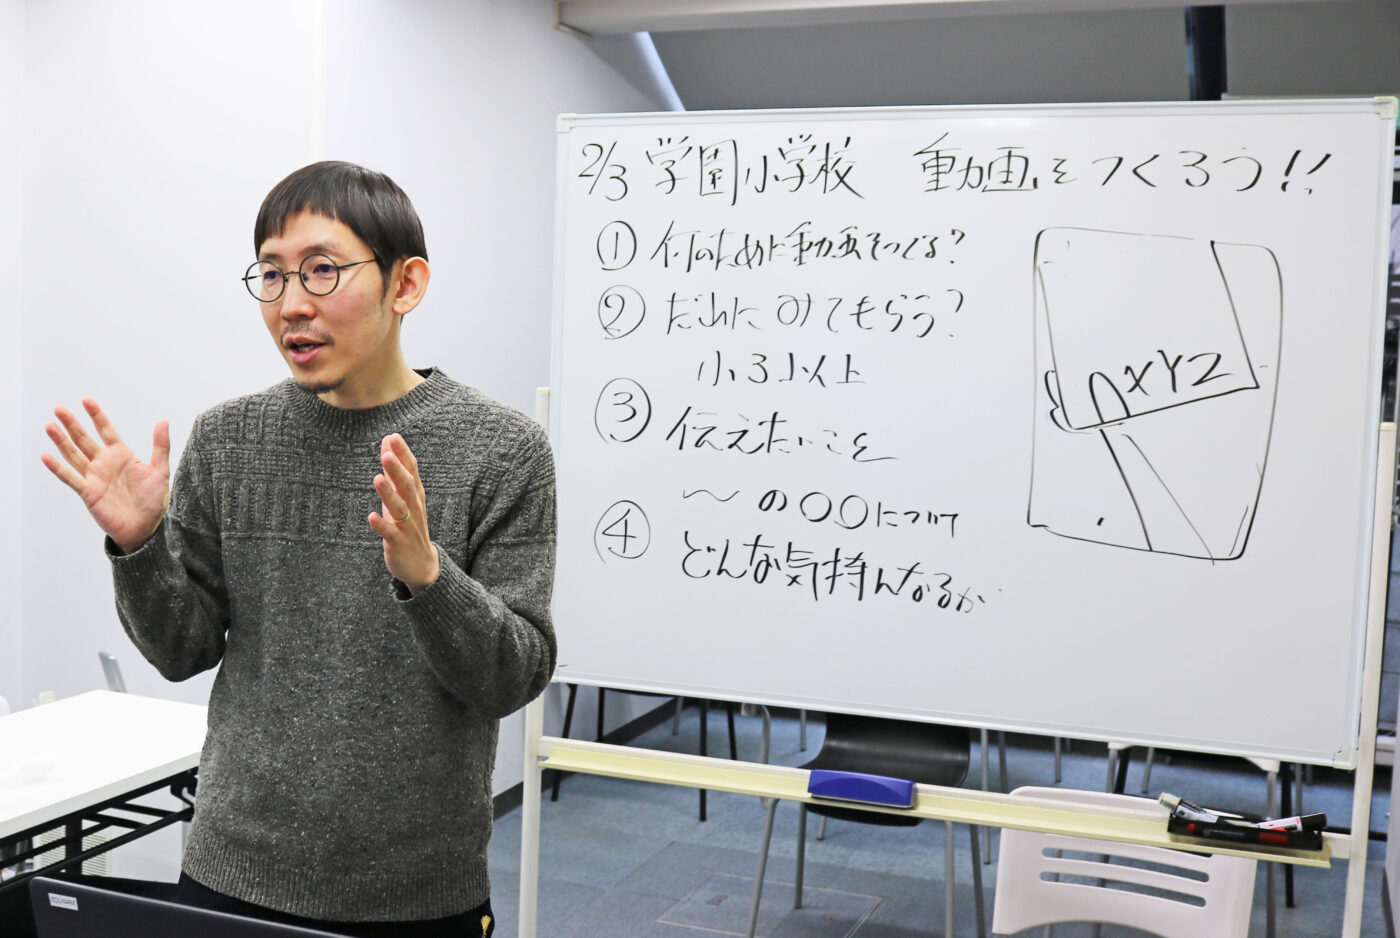 2/3 学園小学校 動画をつくろう!!
① 何のために動画をつくる?
② だれにみてもらう?
小3以上
③ 伝えたいこと
〜の〇〇について
④ どんな気持んなるか
XYZ